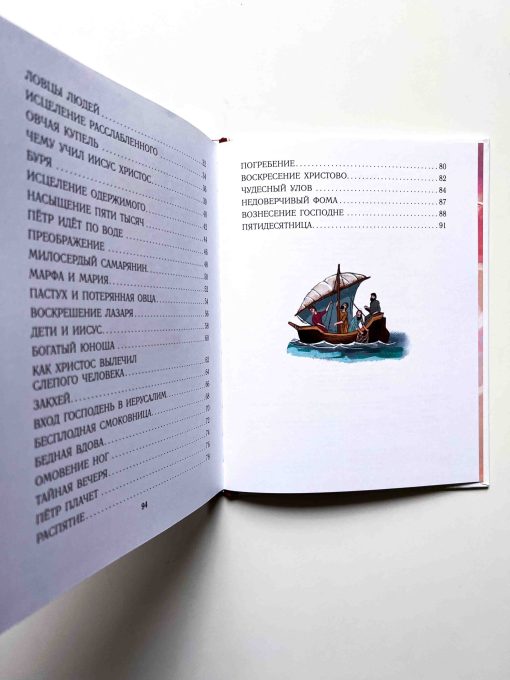 ЛОВЦЫ ЛЮДЕЙ
ИСЦЕЛЕНИЕ РАССЛАБЛЕННОГО
ОВЧАЯ КУПЕЛЬ
ЧЕМУ УЧИЛ ИИСУС ХРИСТОС
БУРЯ
ИСЦЕЛЕНИЕ ОДЕРЖИМОГО
НАСЫЩЕНИЕ ПЯТИ ТЫСЯЧ
ПЁТР ИДЁТ ПО ВОДЕ
ПРЕОБРАЖЕНИЕ
МИЛОСЕРДЫЙ САМАРЯНИН
МАРФА И МАРИЯ
ПАСТУХ И ПОТЕРЯННАЯ ОВЦА
ВОСКРЕШЕНИЕ ЛАЗАРЯ
ДЕТИ И ИИСУС
БОГАТЫЙ ЮНОША
КАК ХРИСТОС ВЫЛЕЧИЛ
СЛЕПОГО ЧЕЛОВЕКА
ЗАКХЕЙ
ВХОД ГОСПОДЕНЬ В ИЕРУСАЛИМ
БЕСПЛОДНАЯ СМОКОВНИЦА
БЕДНАЯ ВДОВА
ОМОВЕНИЕ НОГ
ТАЙНАЯ ВЕЧЕРЯ
ПЁТР ПЛАЧЕТ
РАСПЯТИЕ
94
ПОГРЕБЕНИЕ 80
ВОСКРЕСЕНИЕ ХРИСТОВО 82
ЧУДЕСНЫЙ УЛОВ 84
НЕДОВЕРЧИВЫЙ ФОМА 87
ВОЗНЕСЕНИЕ ГОСПОДНЕ 88
ПЯТИДЕСЯТНИЦА 91